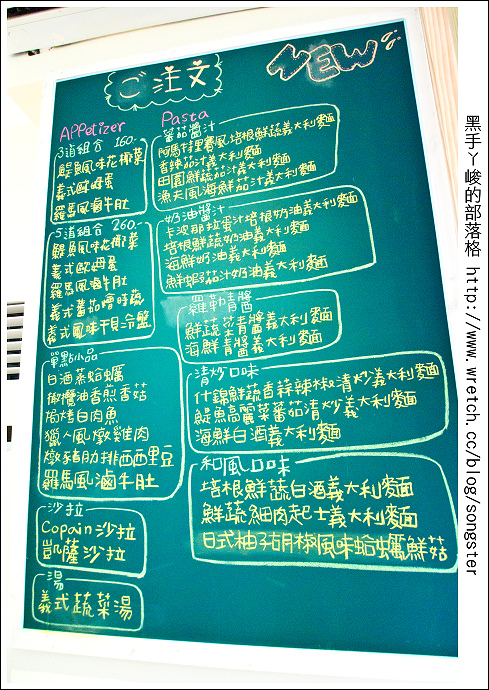 ご注文
NEW
APPetizer
3道組合 160.-
鯷魚風味花椰菜
義式歐姆蛋
羅馬風滷牛肚
5道組合 260.-
鯷魚風味花椰菜
義式歐姆蛋
羅馬風滷牛肚
義式蕃茄燴時蔬
義式風味干貝冷盤
單點小品
白酒蒸蛤蠣
橄欖油香煎香菇
焗烤白肉魚
獵人風燉雞肉
燉豬肋排西西里豆
羅馬風滷牛肚
沙拉
Copain沙拉
凱薩沙拉
湯
義式蔬菜湯
Pasta
蕃茄醬汁
阿馬特里賽風培根鮮蔬義大利麵
香辣茄汁義大利麵
田園鮮蔬茄汁義大利麵
漁夫風海鮮茄汁義大利麵
奶油醬汁
卡波那拉蛋汁培根奶油義大利麵
培根鮮蔬奶油義大利麵
海鮮奶油義大利麵
鮮蝦茄汁奶油義大利麵
羅勒青醬
鮮蔬菜青醬義大利麵
海鮮青醬義大利麵
清炒口味
什錦鮮蔬香蒜辣椒清炒義大利麵
鯷魚高麗菜蕃茄清炒義大利麵
海鮮白酒義大利麵
和風口味
培根鮮蔬白酒義大利麵
鮮蔬細肉起士義大利麵
日式柚子胡椒風味蛤蠣鮮菇
黑手ㄚ峻的部落格 http://www.wretch.cc/blog/songster